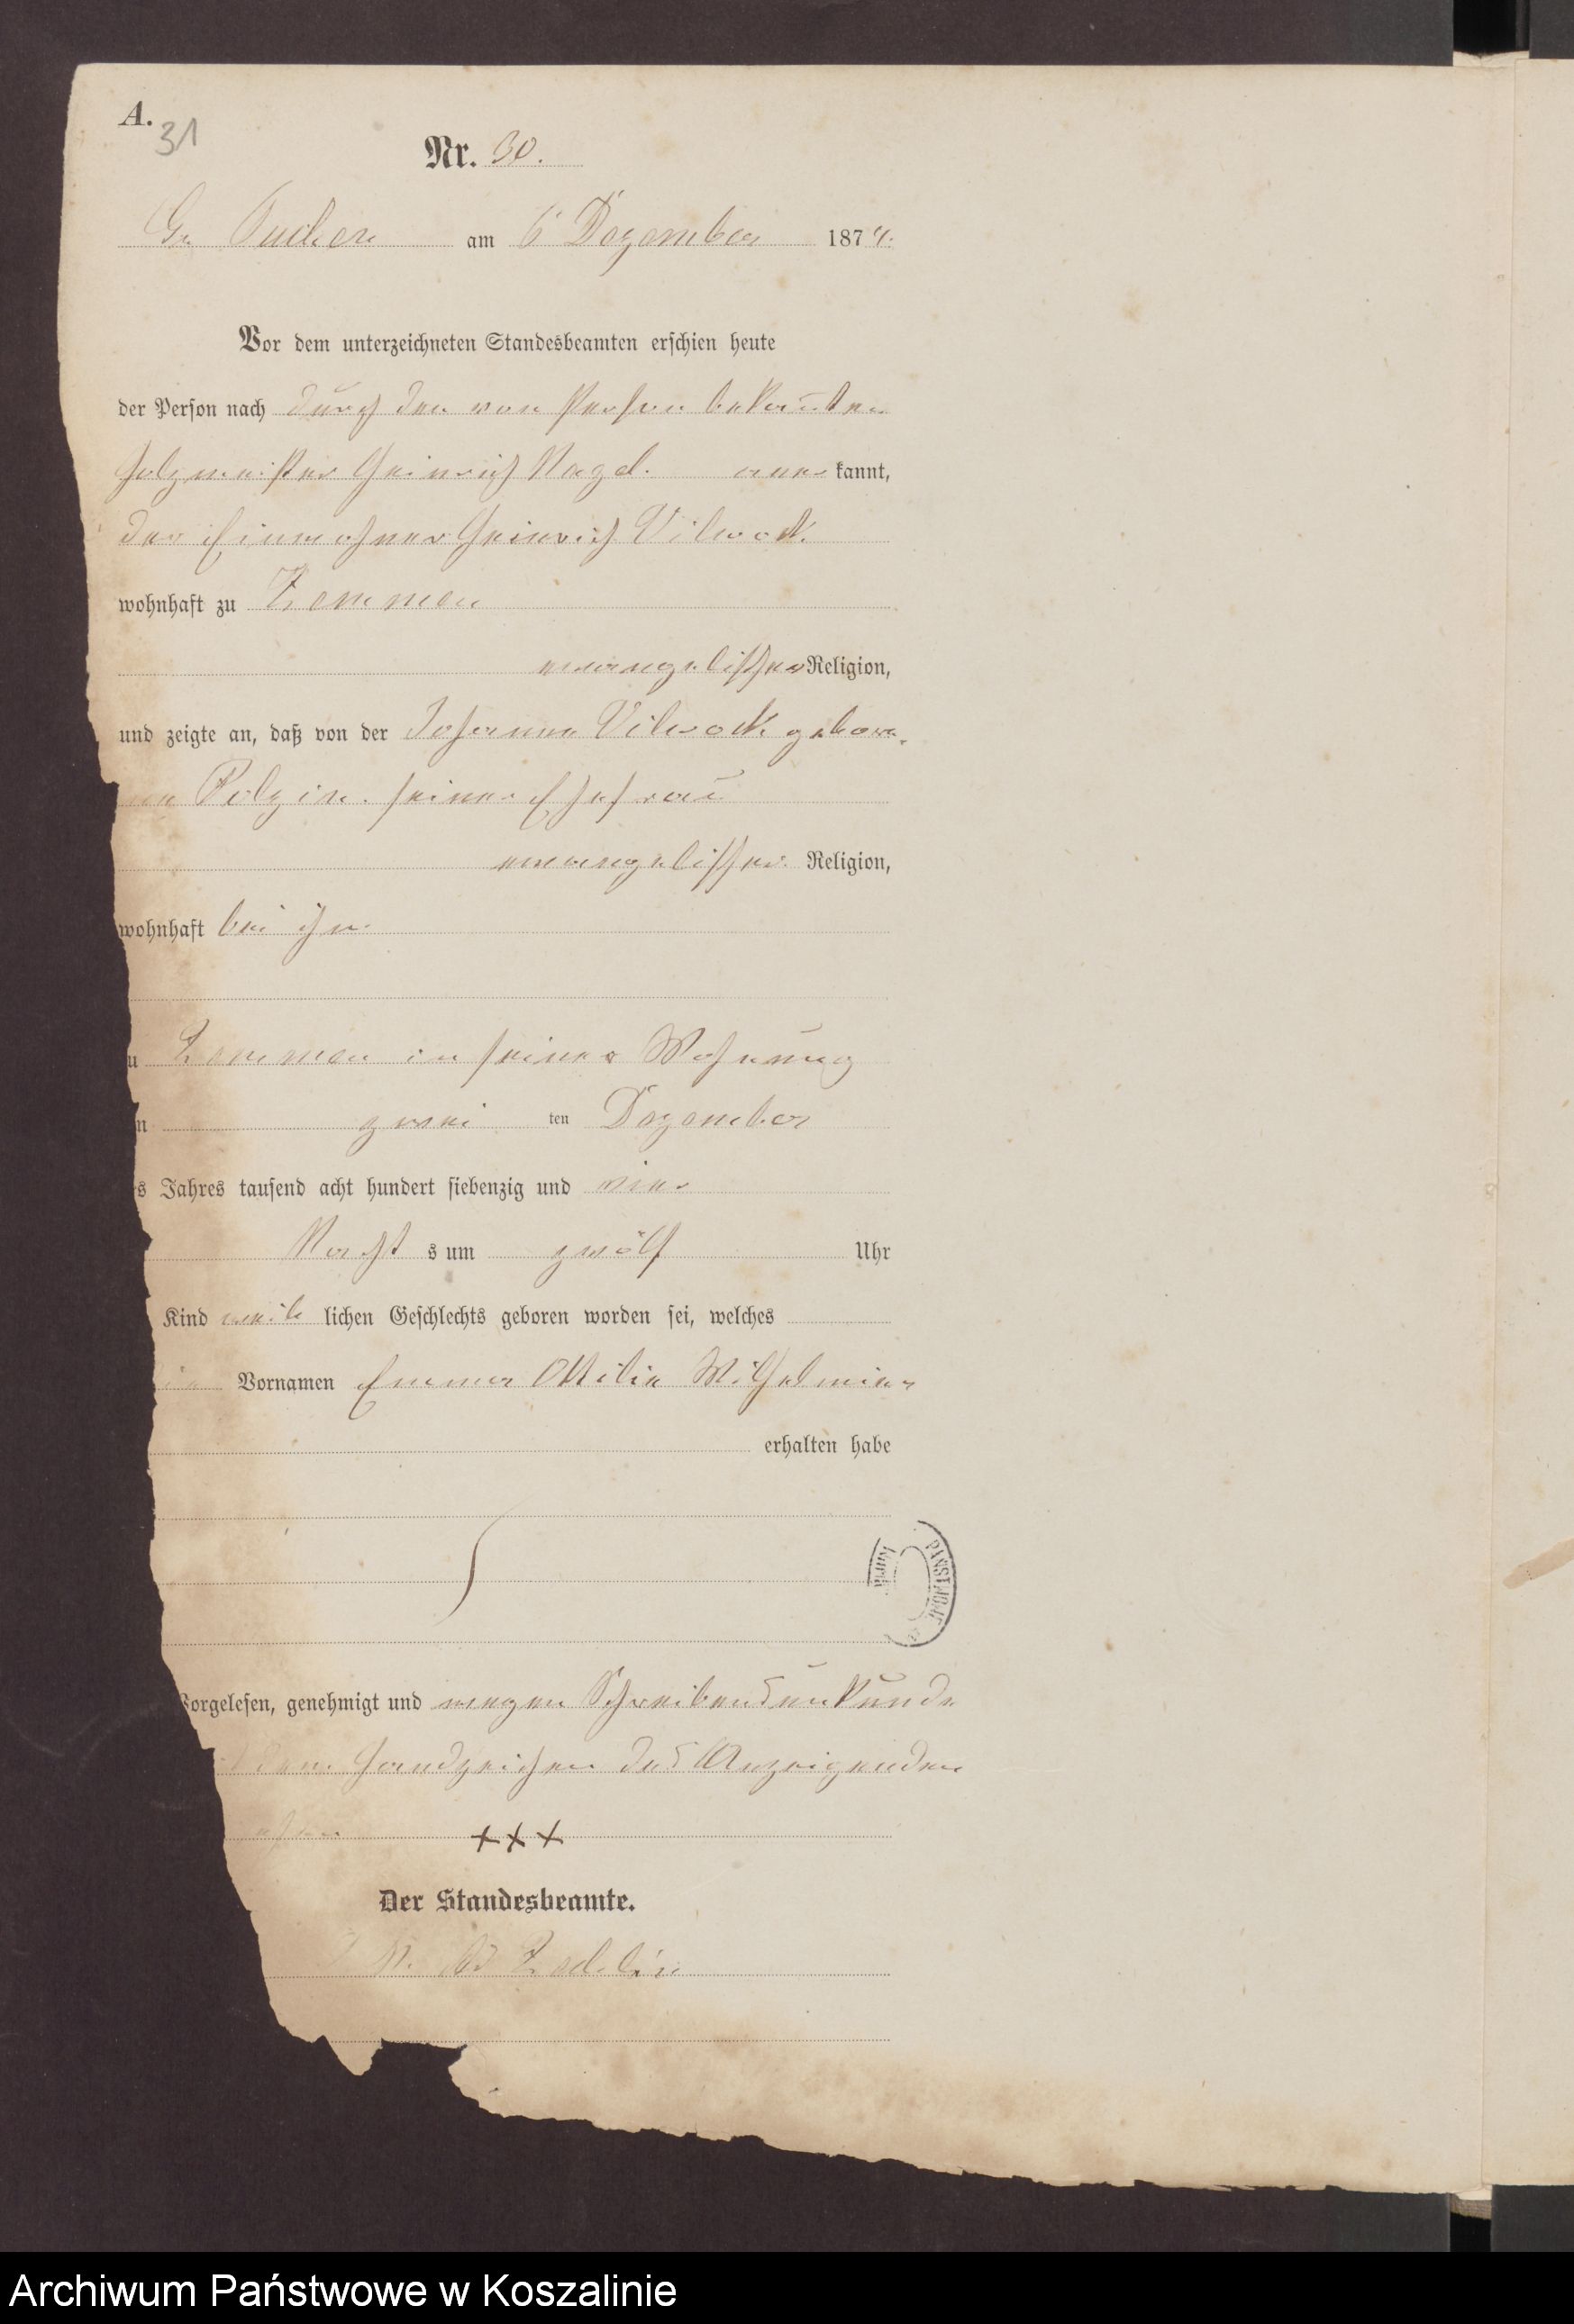 A.
31
Nr. 30.
Gr Tuchen am 6 Dezember 1874.
Vor dem unterzeichneten Standesbeamten erschien heute
der Person nach durch den von Person bekannten
Holzmeister Heinrich Nagel. aner kannt,
der Einwohner Heinrich Vilwock
wohnhaft zu Zemmen
evangelischer Religion,
und zeigte an, daß von der Johanna Vilwock gebore¬
nen Polzin. seiner Ehefrau
evangelischer Religion,
wohnhaft bei ihm
u Zemmen in seiner Wohnung
n zwei ten Dezember
s Jahres tausend acht hundert siebenzig und vier
Nacht s um zwölf Uhr
Kind weib lichen Geschlechts geboren worden sei, welches
Vornamen Emma Ottilie Wilhelmine
erhalten habe
Vorgelesen, genehmigt und wegen Schreibensunkunde
dem Handzeichen des Anzeigenden
ehen +++
Der Standesbeamte.
Archiwum Państwowe w Koszalinie